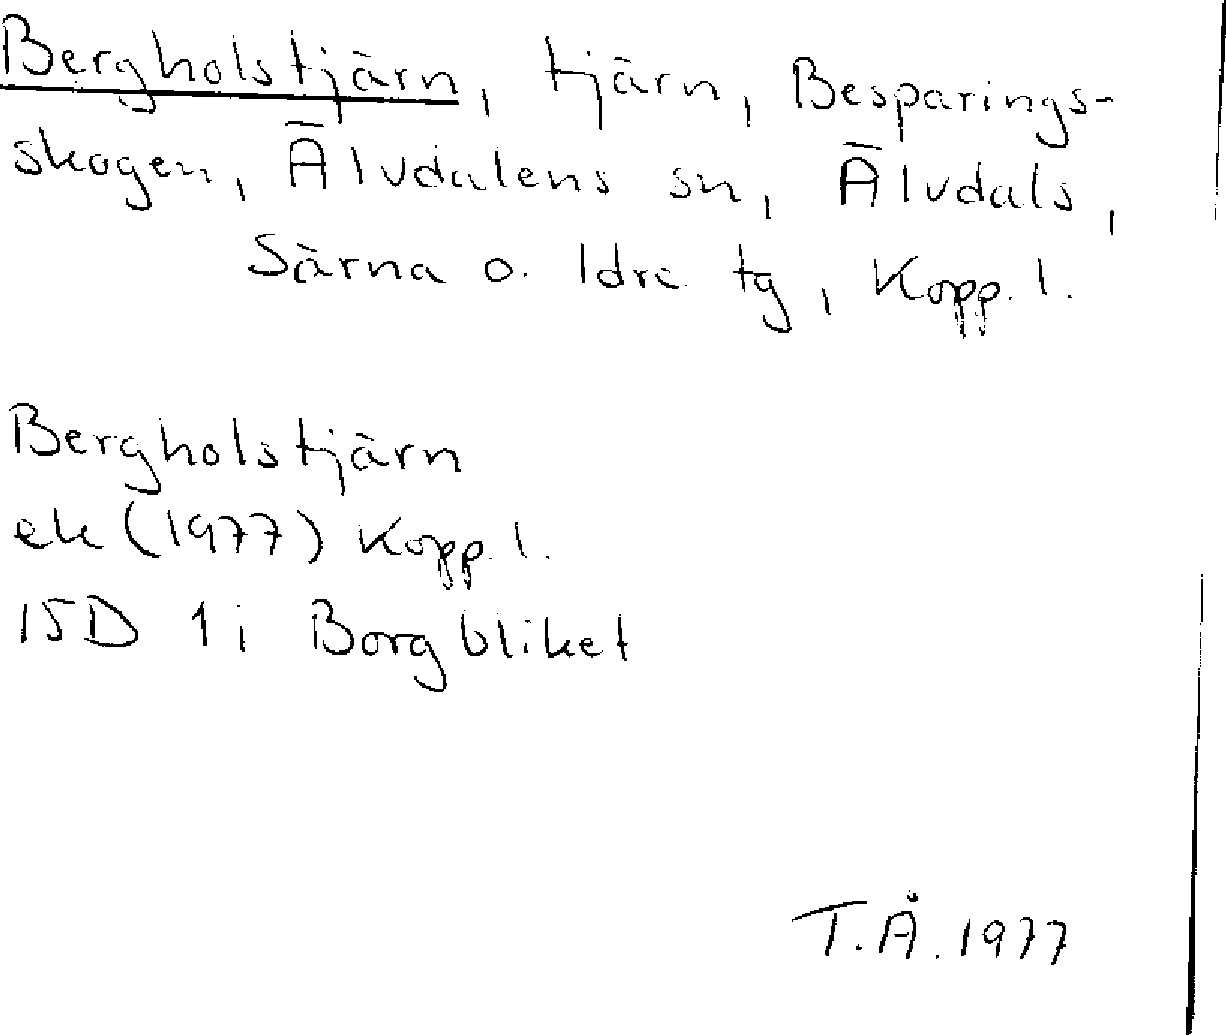 Bergholstjärn, tjärn, Besparings-
skogen, Älvdalens sn, Älvdals,
Särna o. Idre tg, Kopp. l.
Bergholstjärn
ek (1977) Kopp. l.
15D 1i Borgbliket
T.Å. 1977